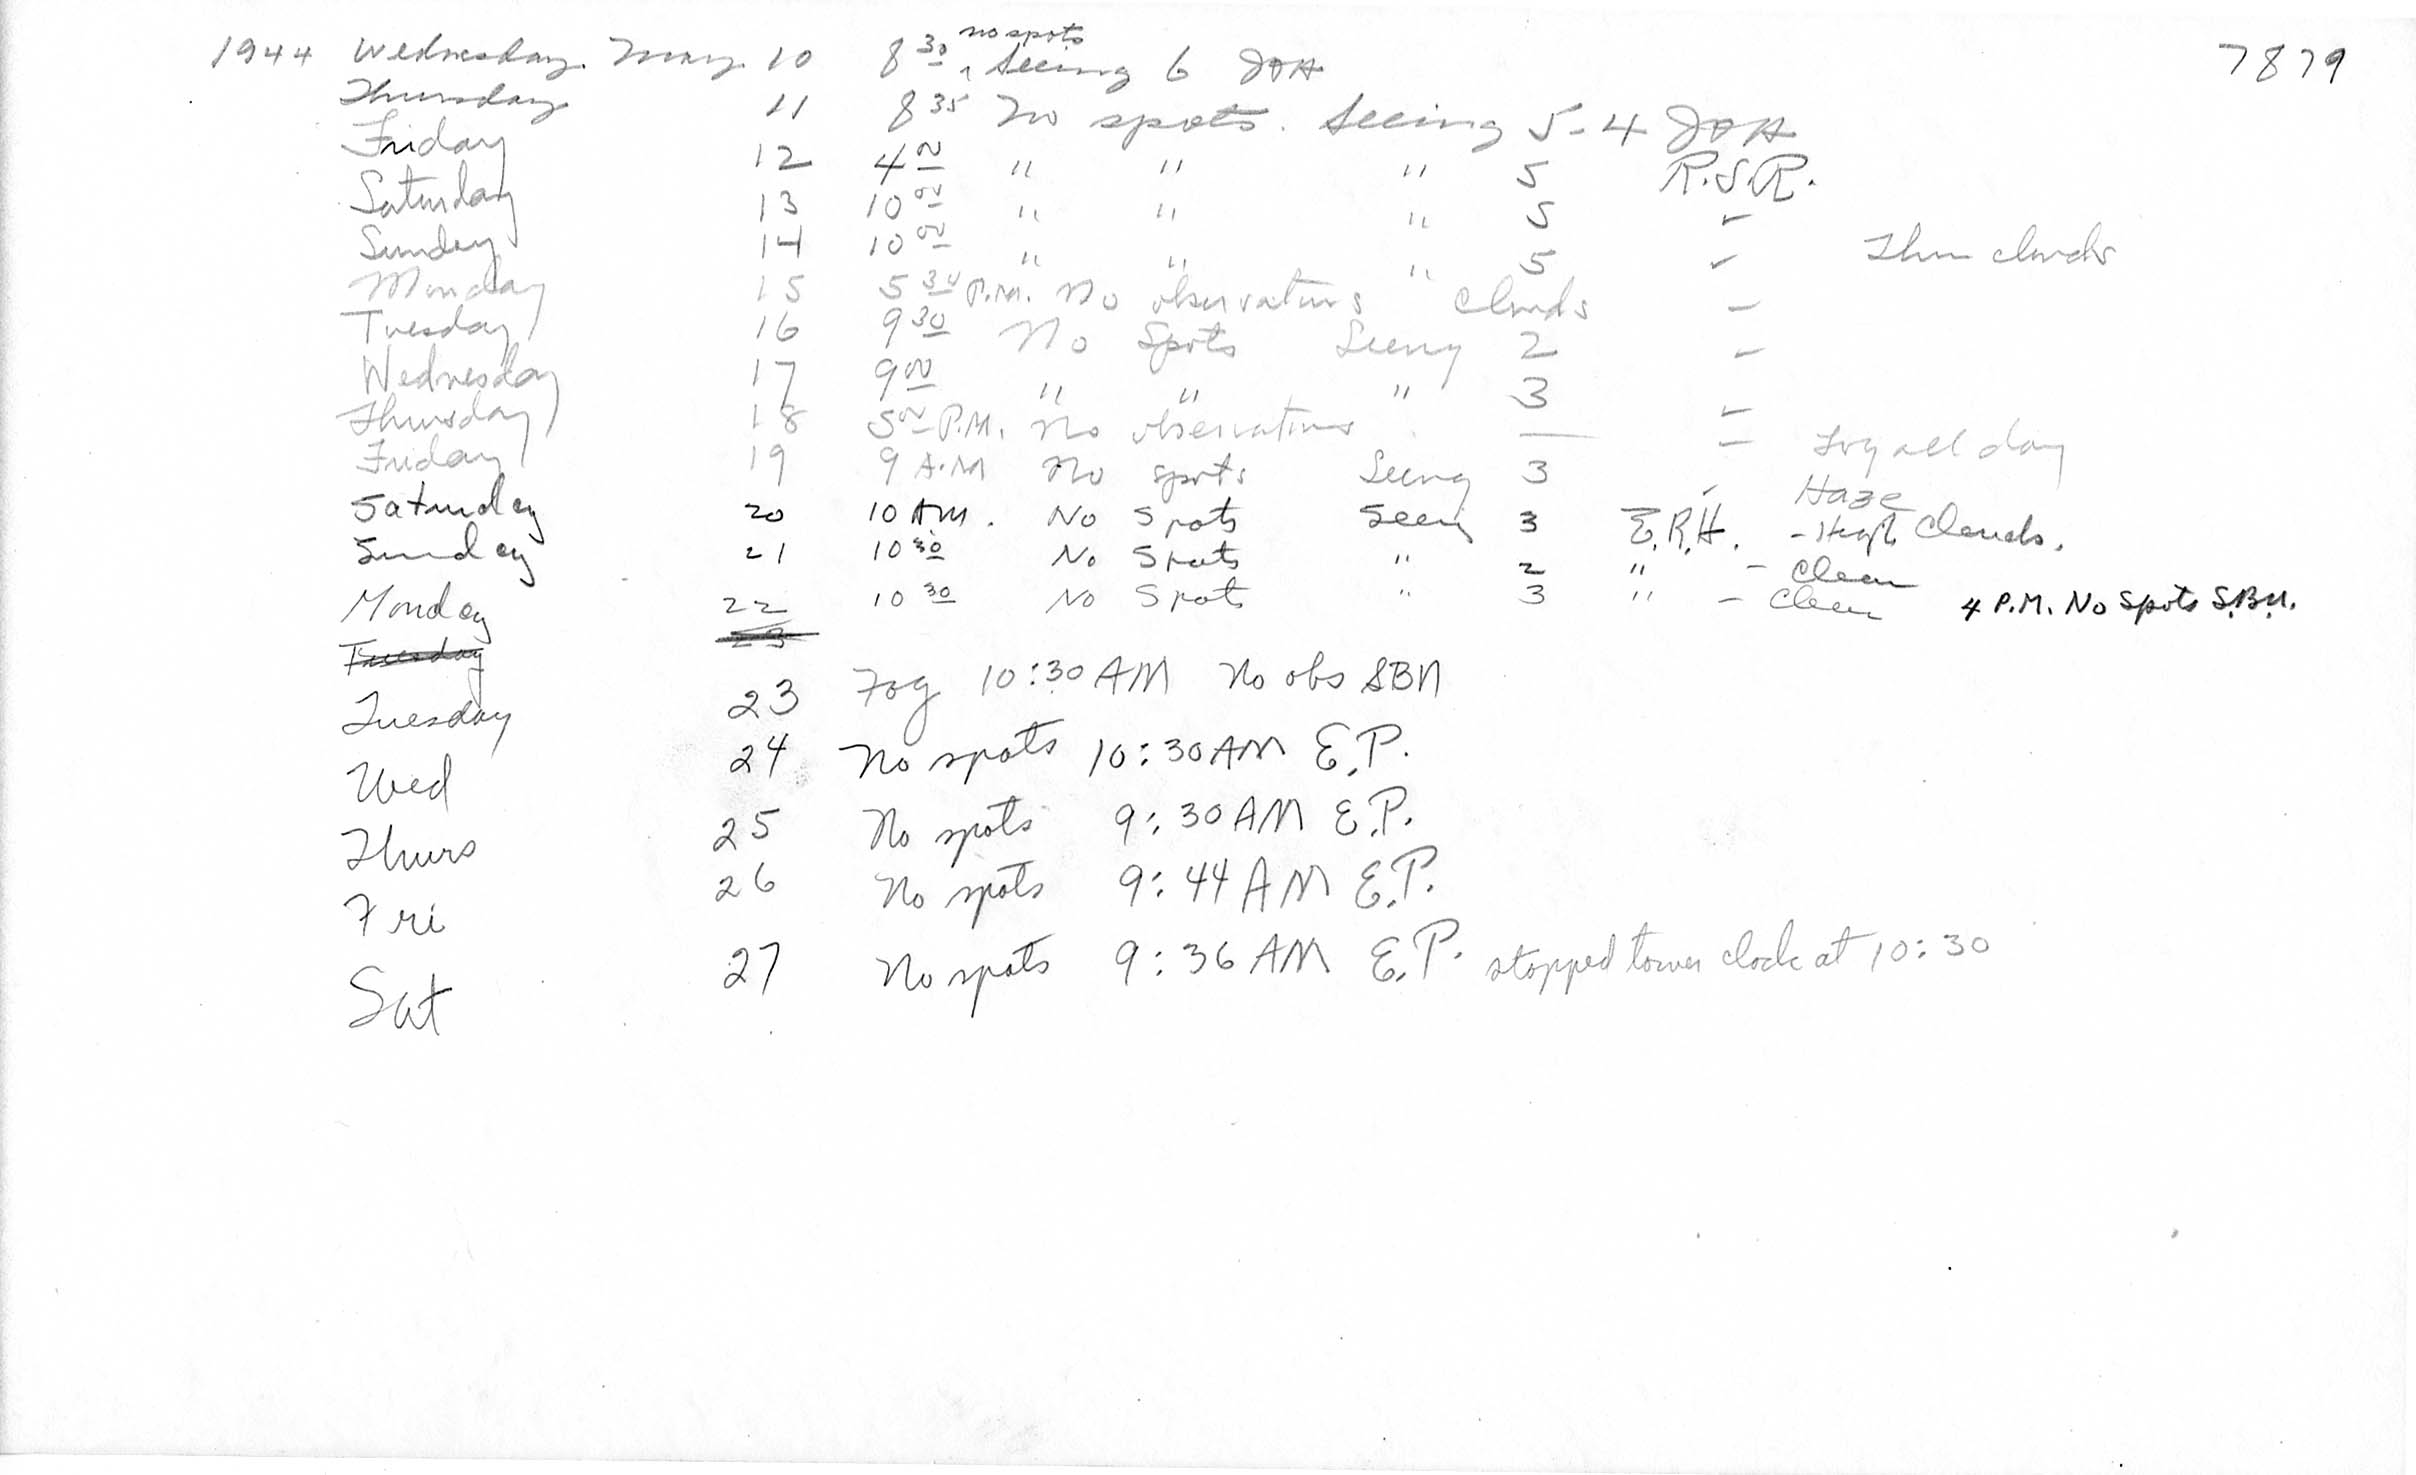 1944 Wednesday. May. 10 8 30 no spots Seeing 6 JOH 7879
Thursday 11 8 35 No spots. Seeing 5-4 JOH
Friday 12 4 00 " " " 5 R.S.R.
Saturday 13 10 00 " " " 5 "
Sunday 14 10 00 " " " 5 " Thin clouds
Monday 15 5 30 P.M. No observations Clouds "
Tuesday 16 9 30 No Spots Seeing 2 "
Wednesday 17 9 00 " " " 3 "
Thursday 18 5 00 P.M. No observations — " Fog all day
Friday 19 9 A.M No spots Seeing 3 " Haze
Saturday 20 10 A.M. No Spots Seeing 3 E.R.H. - High Clouds.
Sunday 21 10 30 No Spots " 2 " - Clear
Monday 22 10 30 No Spots " 3 " - Clear 4 P.M. No Spots S.B.N.
Tuesday 23
Tuesday 23 Fog 10:30 AM No obs SBN
Wed 24 No spots 10:30 AM E.P.
Thurs 25 No spots 9:30 AM E.P.
Fri 26 No spots 9:44 AM E.P.
Sat 27 No spots 9:36 AM E.P. stopped tower clock at 10:30